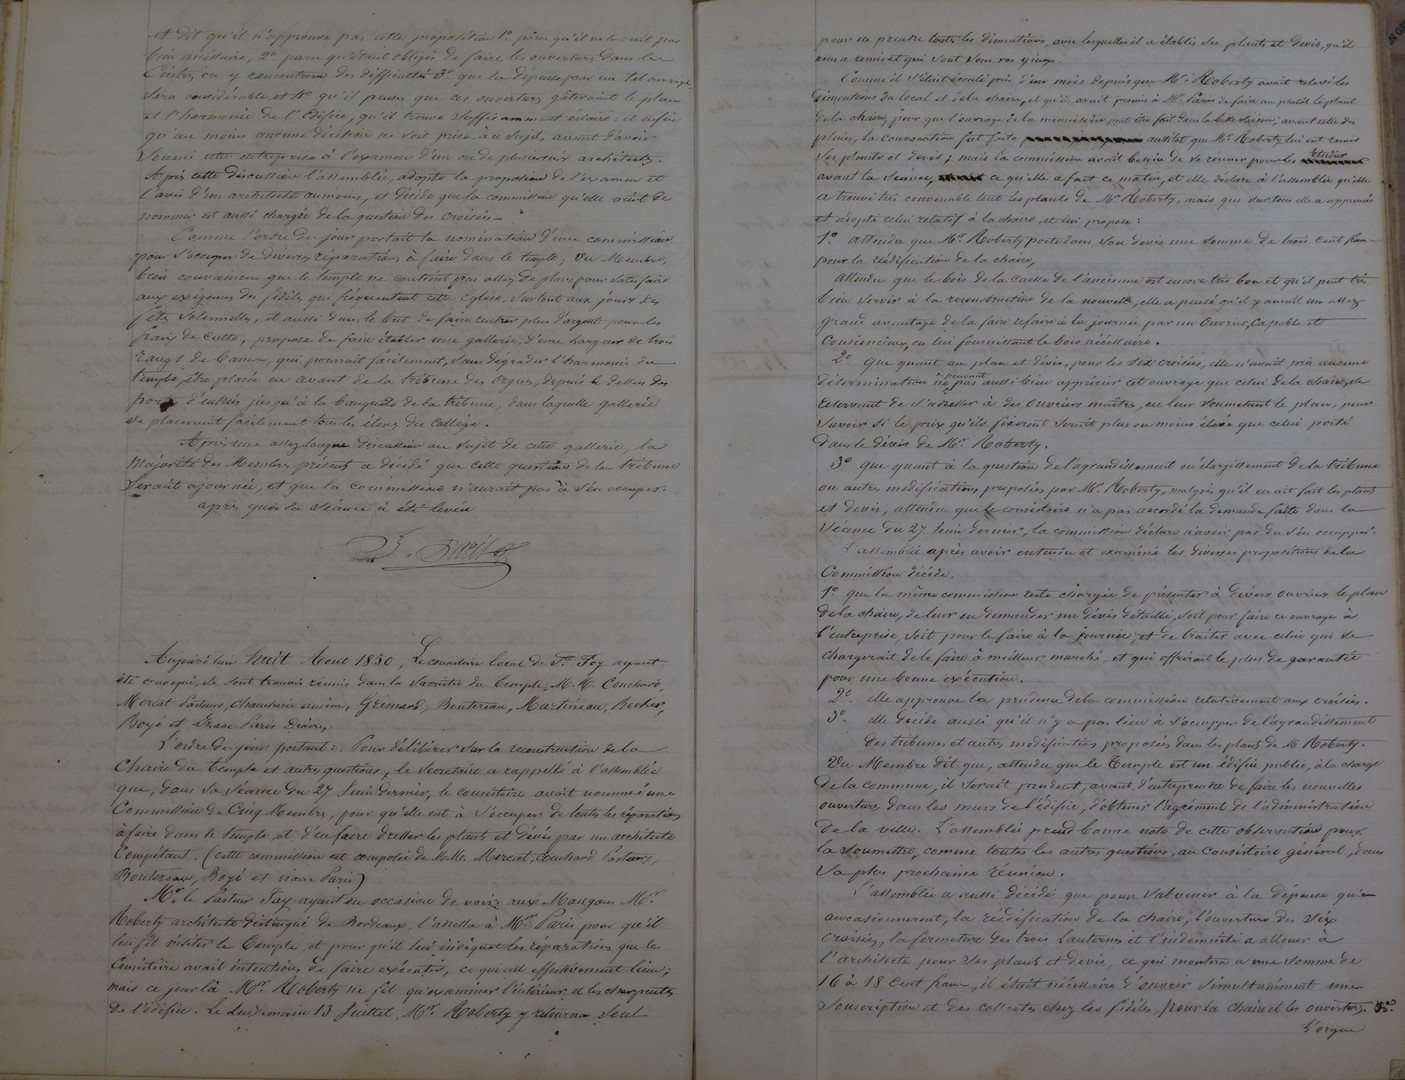 et dit qu'il n'approuve pas cette proposition 1º parce qu'il ne le croit pas
bien nécessaire, 2º parce qu'étant obligé de faire les ouvertures dans les
Cintres on y rencontrera des difficultés 3º que la dépense pour un tel ouvrage
sera considérable, et 4º qu'il pense que ces ouvertures gâteraient le plan
et l'harmonie de l'Edifice, qu'il trouve suffisamment éclairé; et enfin
qu'au moins aucune décision ne soit prise, à ce sujet, avant d'avoir
soumis cette entreprise à l'examen d'un ou de plusieurs architectes.
Après cette discussion l'assemblée, adopte la proposition de l'examen et
l'avis d'un architecte au moins, et décide que la commission qu'elle vient de
nommer est aussi chargée de la question des croisées.
Comme l'ordre du jour portait la nomination d'une commission
pour s'occuper de diverses réparations à faire dans le temple; un Membre,
bien convaincu que le temple ne contient pas assez de places pour satisfaire
aux exigences des fidèles qui fréquentent cette Eglise, surtout aux jours des
fêtes solennelles, et aussi dans le but de faire rentrer plus d'argent pour les
frais de Culte, propose de faire établir une gallerie, d'une largeur de trois
rangs de bancs, qui pourrait facilement, sans dégrader l'harmonie du
temple, être placée en avant de la tribune des orgues, depuis le dessus des
portes d'entrées jusqu'à la banquette de la tribune, dans laquelle gallerie
se placeraient facilement tous les élèves du collège.
Après une assez longue discussion au sujet de cette gallerie, la
majorité des Membres présents a décidé que cette question de la tribune
serait ajournée, et que la commission n'aurait pas à s'en occuper.
après quoi la séance a été levée
Paris
Aujourd'hui huit Aout 1850, Le consistoire local de Ste Foy ayant
été convoqué, se sont trouvés réunis dans la Sacristie du Temple, M.M. Couchard,
Mercat Pasteurs, Grimard, Boutereau, Martineau, Becker,
Bozé et Paris Diacres.
L'ordre du jour portait: Pour délibérer sur la reconstruction de la
Chaire du temple et autres questions, le Secrétaire a rappellé à l'assemblée
que, dans sa séance du 27 Juin dernier, le consistoire avait nommé une
Commission de Cinq Membres, pour qu'elle eut à s'occuper de toutes les réparations
à faire dans le temple, et d'en faire dresser les plants et dévis par un architecte
Compétant. (cette commission est composée de M.M. Mercat, Couchard Pasteurs,
Boutereau, Bozé et Paris)
Mr. le Pasteur Fay ayant eu occasion de voir aux Mangons Mr.
Roberty architecte distingué de Bordeaux, l'adressa à Mr. Paris pour qu'il
lui fit visiter le Temple, et pour qu'il lui indiquat les réparations que le
Consistoire avait intentions de faire exécuter, ce qui eut effectivement lieu;
mais ce jour là Mr. Roberty ne fit qu'examiner l'intérieur et les charpentes
de l'édifice. Le Lendemain 13 Juillet, Mr. Roberty y retourna seul
pour en prendre toutes les dimentions, avec lesquelles il a établis ses plants et devis, qu'il
nous a remis et qui sont sous vos yeux.
Comme il s'était écoulé près d'un mois depuis que Mr. Roberty avait relevé les
dimentions du local et de la chaire, et qu'il avait promis à Mr. Paris de faire au plutôt le plant
de la chaire, pour que l'ouvrage de la menuiserie put être fait dans la belle saison, avant celle des
pluies, la convocation fut faite aussitôt que Mr. Roberty lui eut remis
ses plants et devis; mais la commission avait besoin de se réunir pour les étudier
avant la séance, ce qu'elle a fait ce matin, et elle déclare à l'assemblée qu'elle
a trouvé très convenable tous les plants de Mr. Roberty, mais que surtout elle a approuvé
et adopté celui relatif à la chaire, et lui propose:
1º. attendu que Mr. Roberty porte dans son devis une somme de trois cent francs
pour la réédification de la chaire,
attendu que le bois de la caisse de l'ancienne est encore très bon et qu'il peut très
bien servir à la reconstruction de la nouvelle, elle a pensé qu'il y aurait un assez
grand avantage de la faire refaire à la journée par un ouvrier, capable et
consciencieux, en lui fournissant le bois nécessaire.
2º. Que quant au plan et dévis, pour les dix croisées, elle n'avait pris aucune
détermination ne pouvant pas aussi bien apprécier cet ouvrage que celui de la chaire, se
réservant de s'adresser à des ouvriers maîtres, en leur soumetant le plan, pour
savoir si le prix qu'ils fixeront serait plus ou moins élevé que celui porté
dans le dévis de Mr. Roberty.
3º que quant à la question de l'agrandissement ou élargissement de la tribune
ou autres modifications proposées par Mr. Roberty, malgré qu'il en ait fait les plants
et dévis, attendu que le consistoire n'a pas accordé la demande faite dans la
Séance du 27 Juin dernier, la commission déclare n'avoir pas du s'en occupper.
L'assemblée après avoir entendu et examiné les diverses propositions de la
Commission décide.
1º que la même commission reste chargée de présenter à divers ouvriers le plan
de la chaire, de leur en demander un dévis détaillé, soit pour faire ce ouvrage à
l'entreprise, soit pour le faire à la journée, et de traiter avec celui qui se
chargerait de le faire à meilleur marché, et qui offrirait le plus de garantie
pour une bonne exécution.
2º. elle approuve la prudence de la commission relativement aux croisées.
3º. elle décide aussi qu'il n'y a pas lieu à s'occupper de l'agrandissement
des tribunes et autres modifications proposées dans les plants de Mr Roberty.
Un Membre dit que, attendu que le Temple est un édifice public, à la charge
de la commune, il serait prudent, avant d'entreprendre de faire les nouvelles
ouvertures dans les murs de l'édifice, d'obtenir l'agrément de l'administration
de la ville. L'assemblée prend bonne note de cette observation pour
la soumettre, comme toutes les autres questions, au Consistoire général, dans
sa plus prochaine réunion.
L'assemblée a aussi décidé que pour subvenir à la dépense qu'en
occasionneront, la réédification de la chaire, l'ouverture des dix
croisées, la fermeture des trois Lanternes et l'indemnité à allouer à
l'architecte pour ses plants et dévis, ce qui montera à une somme de
16 à 18 Cent francs, il était nécessaire d'ouvrir simultanément une
souscription et des collectes chez les fidèles, pour la chaire et les ouvertures.
L'orgue